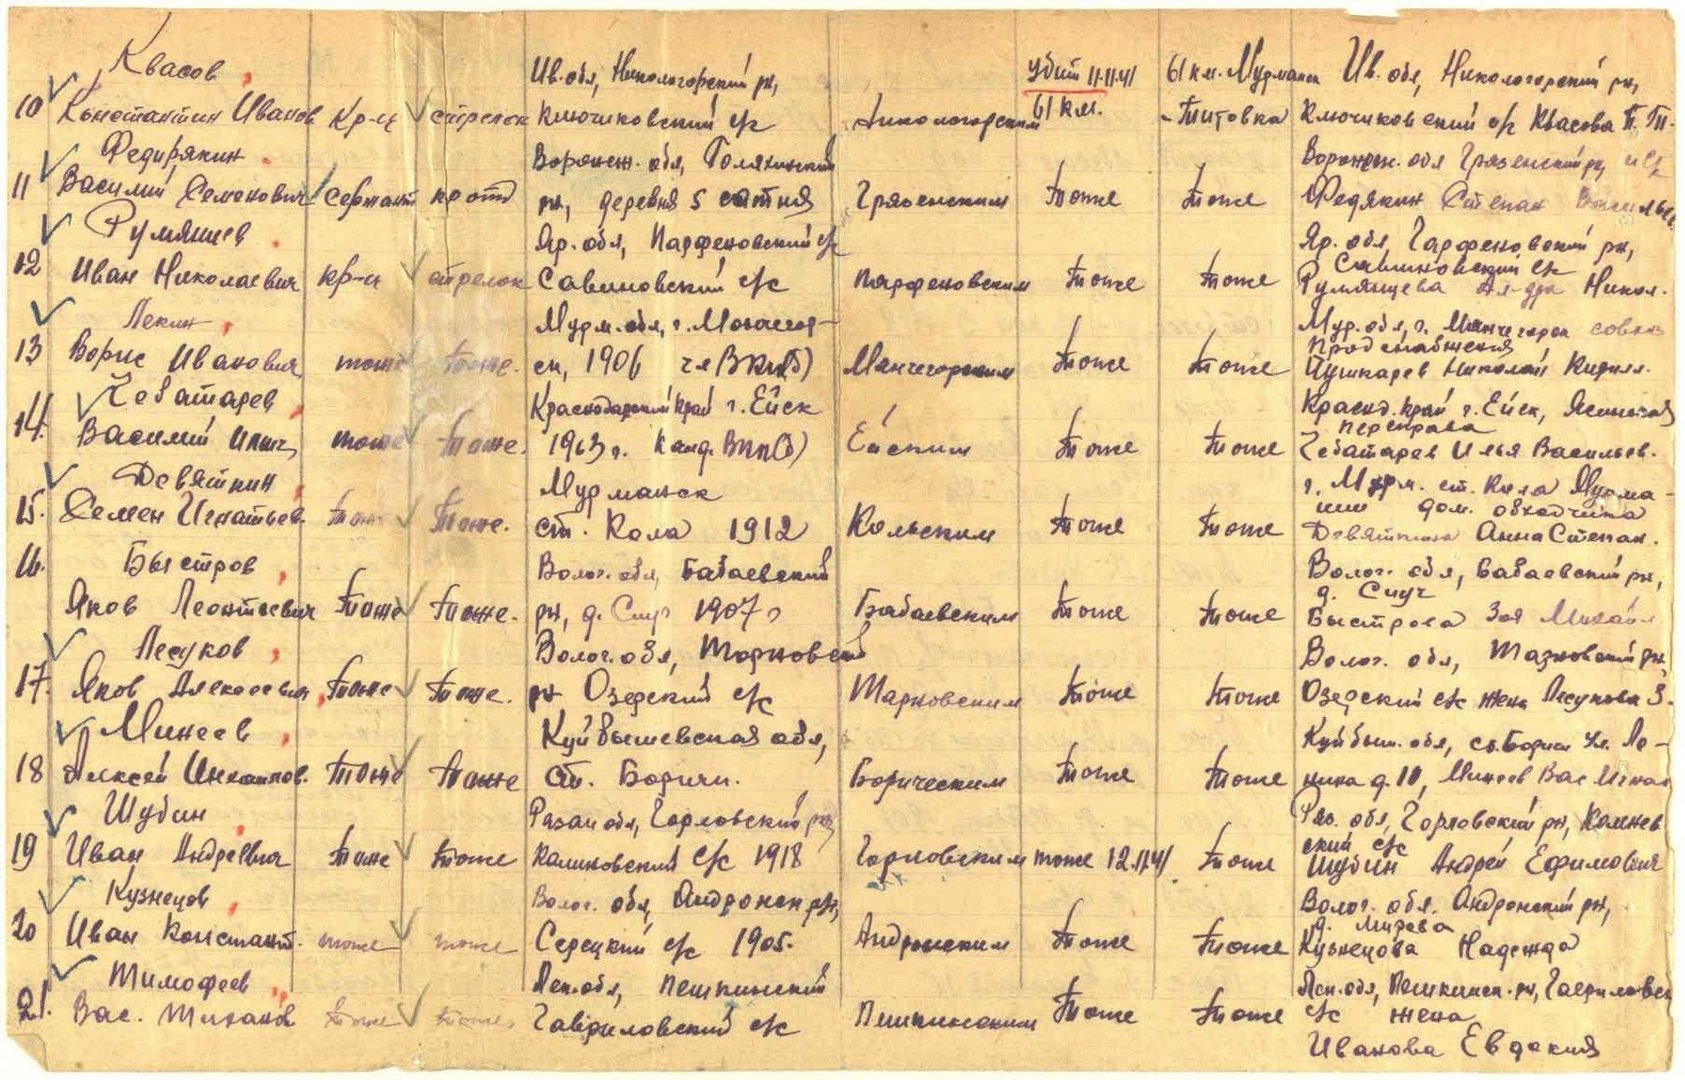 Квасов
Ив. обл, Никологорский рн,
убит 11.11.41
61 км. Мурманск
Ив. обл, Никологорский рн,
10 Константин Иванов кр-ц стрелок Ключиковский с/с Никологорским 61 км. -Титовка Ключиковский с/с Квасова П. Т.
Федирякин
Воронеж. обл,
Воронеж. обл Грязенский рн,
11 Василий Семенович Сержант ком отд рн, деревня 5 сотня Грязенским тоже тоже Федякин Степан
Румянцев
Яр. обл, Парфеновский с/с
Яр. обл, Парфеновский рн,
Савиновский с/с
12 Иван Николаевич кр-ц стрелок Савиновский с/с Парфеновским тоже тоже Румянцева Ал-дра Никол.
Лекин
Мурм. обл, г. Мончегор-
Мур. обл, г. Мончегорск совхоз
Продснабжения
13 Борис Иванович тоже тоже. ск, 1906 чл ВКП(б) Мончегорским тоже тоже Пушкарев Николай Кирилл.
Чебатарев
Краснодарский край г. Ейск
Краснод. край г. Ейск, Ясинская
переправа
14. Василий Ильич тоже тоже. 1913 г. Канд. ВКП(б) Ейским тоже тоже Чебатарев Илья Васильев.
Девяткин
Мурманск
г. Мурм. ст. Кола Мурма-
ши дом. обходчика
15. Семен Игнатьев. тоже тоже. ст. Кола 1912 Кольским тоже тоже Девяткина Анна Степан.
16. Быстров
Волог. обл, Бабаевский
Волог. обл, Бабаевский рн,
д. Случ
Яков Леонтьевич тоже тоже. рн, д. Слуг 1907 г Бабаевским тоже тоже Быстрова Зоя Михайл
Песуков
Волог. обл, Тарновский
Волог. обл, Тарновский рн,
17. Яков Алексеевич тоже тоже. рн Озерский с/с Тарновским тоже тоже Озерский с/с жена Песукова З.
Минеев
Куйбышевская обл,
Куйбыш. обл, ст. Борич ул. Ле-
18 Алексей тоже тоже ст. Боричи. Борическим тоже тоже нина д. 10, Минеев Вас
Шубин
Рязан обл, Горловский рн,
Ряз. обл, Горловский рн, Калинов
ский с/с
19 Иван Андреевич тоже тоже Калиновский с/с 1918 Горловским тоже 12.11.41 тоже Шубин Андрей Ефимович
Кузнецов
Волог. обл, Андронск рн,
Волог. обл. Андронский рн,
д. Мирева
20 Иван Констант. тоже тоже Середский с/с 1905. Андронским тоже тоже Кузнецова Надежда
Тимофеев
Лен. обл, Пешкинский
Лен. обл, Пешкинск. рн, Гавриловск
21. Вас. тоже тоже. Гавриловский с/с Пешкинским тоже тоже с/с жена
Иванова Евдокия